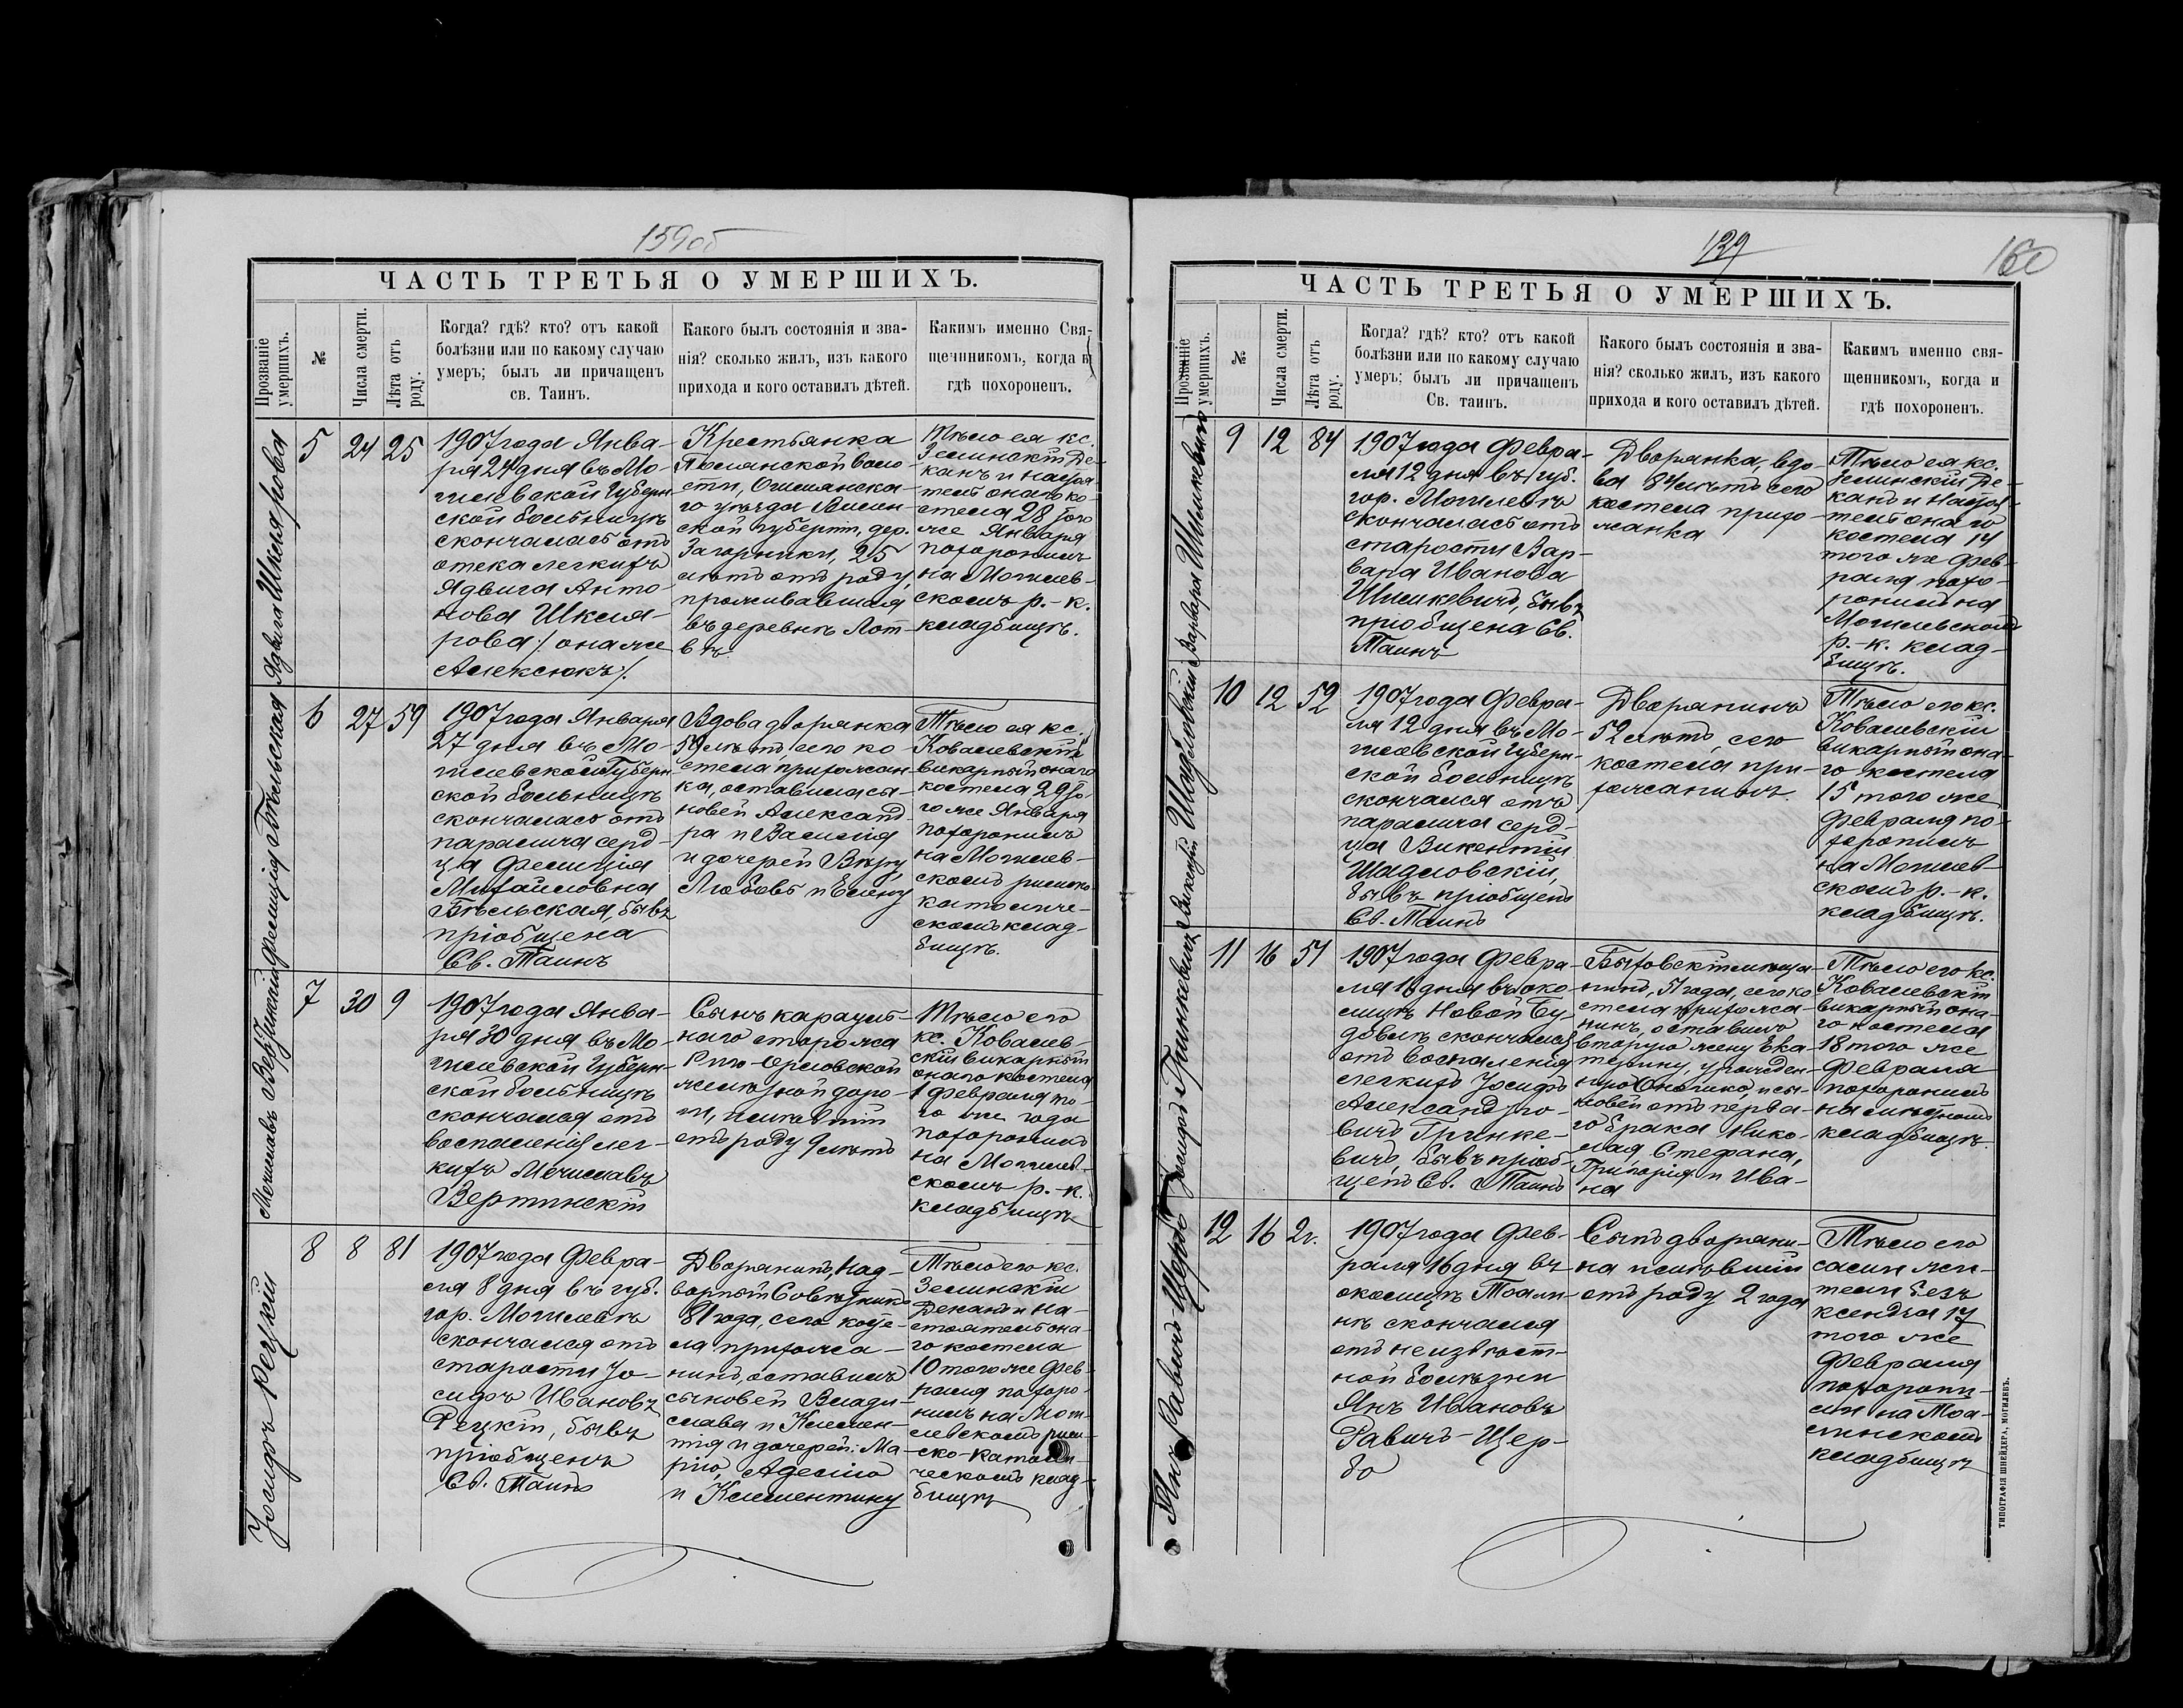 159об
ЧАСТЬ ТРЕТЬЯ О УМЕРШИХЪ.
Прозваніе умершихъ.
№
Числа смерти.
Лѣта отъ роду.
Когда? гдѣ? кто? отъ какой
болѣзни или по какому случаю
умеръ; былъ ли причащенъ
св. Таинъ.
Какого былъ состоянія и зва-
нія? сколько жилъ, изъ какого
прихода и кого оставилъ дѣтей.
Какимъ именно Свя-
щенникомъ, когда и
гдѣ похороненъ.
Ядвига Шклярова
5
24
25
1907 года Янва-
ря 24 дня въ Мо-
гилевской Губерн-
ской больницѣ
скончалась отъ
отека легкихъ
Ядвига Анто-
нова Шкля-
рова /: она же
Алексюкъ :/.
Крестьянка
Полянской воло-
сти, Ошмянска-
го уѣзда Вилен-
ской губерніи, дер.
Загорники, 25
лѣтъ отъ роду,
проживавшая
въ деревнѣ Лот-
вѣ
Тѣло ея кс.
Зелинскій Де-
канъ и настоя-
тель онаго ко-
стела 28 того
же Января
похоронилъ
на Могилев-
скомъ р.-к.
кладбищѣ.
Фелиція Бѣльская
6
27
59
1907 года Января
27 дня въ Мо-
гилевской Губерн-
ской больницѣ
скончалась отъ
паралича серд-
ца Фелиція
Михайловна
Бѣльская, бывъ
пріобщена
Св. Таинъ
Вдова дворянка
59 лѣтъ, сего ко-
стела прихожан-
ка, оставила сы-
новей Александ-
ра и Василія
и дочерей Вѣру,
Любовь и Елену
Тѣло ея кс.
Ковалевскій
викарный онаго
костела 29 то-
го же Января
похоронилъ
на Могилев-
скомъ римско-
католиче-
скомъ клад-
бищѣ.
Мечиславъ Вертинскій
7
30
9
1907 года Янва-
ря 30 дня въ Мо-
гилевской Губерн-
ской больницѣ
скончался отъ
воспаленія лег-
кихъ Мечиславъ
Вертинскій
Сынъ карауль-
наго сторожа
Риго-Орловской
желѣзной доро-
ги, имѣвшій
отъ роду 9 лѣтъ
Тѣло его
кс. Ковалев-
скій викарный
онаго костела
1 Февраля то-
го же года
похоронилъ
на Могилев-
скомъ р.-к.
кладбищѣ
Іосифъ Рецкій
8
8
81
1907 года Февра-
ля 8 дня въ губ.
гор. Могилевѣ
скончался отъ
старости Іо-
сифъ Ивановъ
Рецкій, бывъ
пріобщенъ
Св. Таинъ
Дворянинъ, Над-
ворный Совѣтникъ
81 года, сего косте-
ла прихожа-
нинъ, оставилъ
сыновей Влади-
слава и Клемен-
тія и дочерей: Ма-
рію, Аделію
и Клементину
Тѣло его кс.
Зелинскій
Деканъ и На-
стоятель она-
го костела
10 того же Фев-
раля похоро-
нилъ на Моги-
левскомъ рим-
ско-католи-
ческомъ клад-
бищѣ
139
160
ЧАСТЬ ТРЕТЬЯ О УМЕРШИХЪ.
Прозваніе умершихъ.
№
Числа смерти.
Лѣта отъ роду.
Когда? гдѣ? кто? отъ какой
болѣзни или по какому случаю
умеръ; былъ ли причащенъ
Св. таинъ.
Какого былъ состоянія и зва-
нія? сколько жилъ, изъ какого
прихода и кого оставилъ дѣтей.
Какимъ именно свя-
щенникомъ, когда и
гдѣ похороненъ.
Варвара Шишкевичъ
9
12
84
1907 года Февра-
ля 12 дня въ губ.
гор. Могилевѣ
скончалась отъ
старости Вар-
вара Иванова
Шишкевичъ, бывъ
пріобщена Св.
Таинъ
Дворянка, вдо-
ва 84 лѣтъ сего
костела прихо-
жанка
Тѣло ея кс.
Зелинскій Де-
канъ и Настоя-
тель онаго
костела 14
того же Фев-
раля похо-
ронилъ на
Могилевскомъ
р.-к. клад-
бищѣ.
Викентій Шадловскій
10
12
52
1907 года Февра-
ля 12 дня въ Мо-
гилевской Губерн-
ской больницѣ
скончался отъ
паралича серд-
ца Викентій
Шадловскій,
бывъ пріобщенъ
Св. Таинъ
Дворянинъ
52 лѣтъ, сего
костела при-
хожанинъ.
Тѣло его кс.
Ковалевскій
викарный она-
го костела
15 того же
Февраля по-
хоронилъ
на Могилев-
скомъ р.-к.
кладбищѣ.
Іосифъ Гринкевичъ
11
16
51
1907 года Февра-
ля 16 дня въ око-
лицѣ Новой Бу-
довлѣ скончался
отъ воспаленія
легкихъ Іосифъ
Александро-
вичъ Гринке-
вичъ, бывъ пріоб-
щенъ Св. Таинъ
Быховскій мѣща-
нинъ, 51 года, сего ко-
стела прихожа-
нинъ, оставилъ
вторую жену Ека-
терину, урожден-
ную и сы-
новей отъ перва-
го брака Нико-
лая, Стефана,
Григорія и Ива-
на
Тѣло его кс.
Ковалевскій
викарный она-
го костела
18 того же
Февраля
похоронилъ
на мѣстномъ
кладбищѣ.
Янъ Равичъ-Щербо
12
16
2 г.
1907 года Фев-
раля 16 дня въ
околицѣ
скончался
отъ неизвѣст-
ной болѣзни
Янъ Ивановъ
Равичъ-Щер-
бо
Сынъ дворяни-
на имѣвшій
отъ роду 2 года
Тѣло его
сами жи-
тели безъ
ксендза 17
того же
Февраля
похорони-
ли на
кладбищѣ
ТИПОГРАФІЯ ШНЕЙДЕРА, МОГИЛЕВЪ.